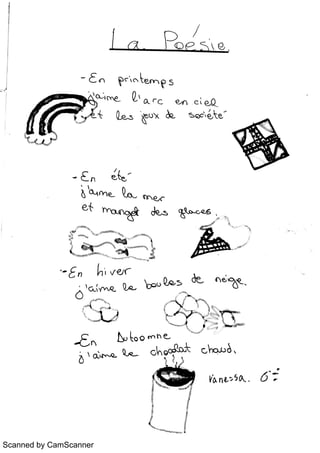 La Poésie
- En printemps
j'aime l'arc en ciel
et les jeux de société
- En été
j'aime la mer
et manger des glaces.
- En hiver
j'aime le boules de neige.
- En Autoomne
j'aime le chocolat chaud.
Vanessa. 6÷
Scanned by CamScanner